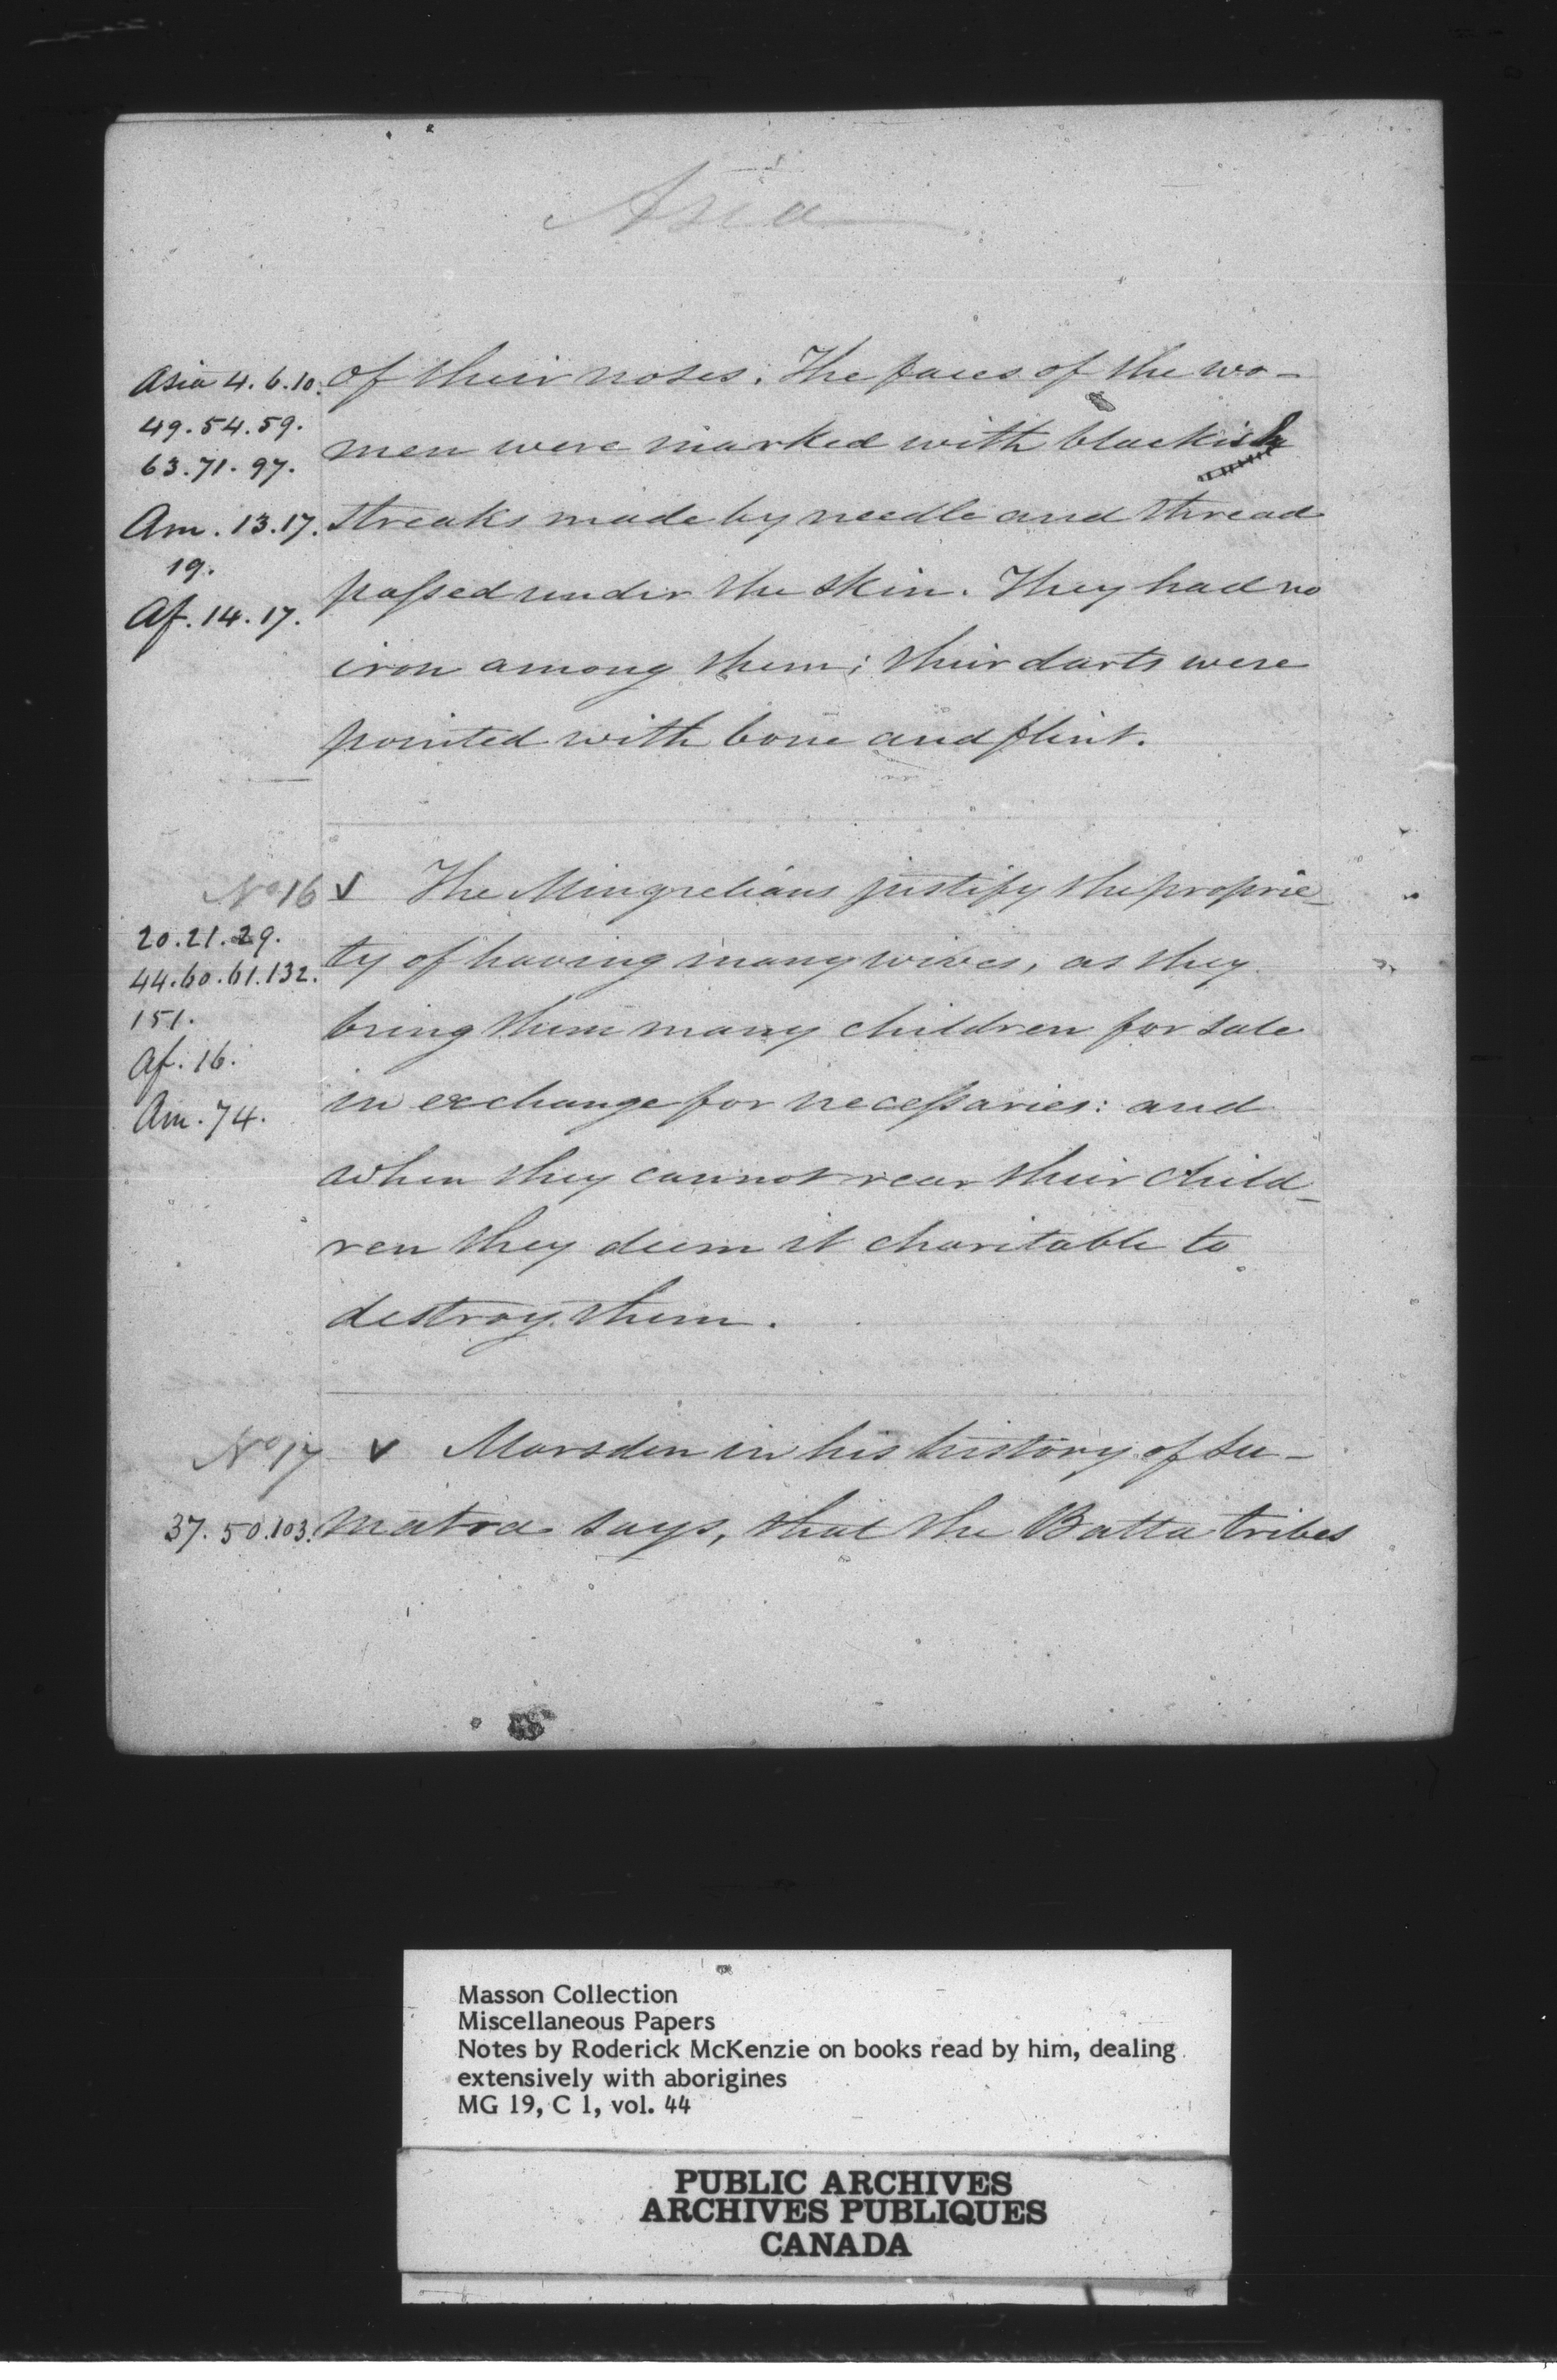 Asia
Asia 4. 6. 10.
49. 54. 59.
63. 71. 97.
Am. 13. 17.
19.
Af. 14. 17.
of their noses. The faces of the wo-
men were marked with blackish
streaks made by needle and thread
passed under the skin. They had no
iron among them; their darts were
pointed with bone and flint.
No 16
20. 21. 29.
44. 60. 61. 132.
151.
Af. 16.
Am. 74.
√ The Mingrelians justify the proprie-
ty of having many wives, as they
bring them many children for sale
in exchange for necessaries: and
when they cannot rear their child-
ren they deem it charitable to
destroy them.
No 17
37. 50. 103.
√ Marsden in his history of Su-
matra says, that the Batta tribes
Masson Collection
Miscellaneous Papers
Notes by Roderick McKenzie on books read by him, dealing
extensively with aborigines
MG 19, C 1, vol. 44
PUBLIC ARCHIVES
ARCHIVES PUBLIQUES
CANADA